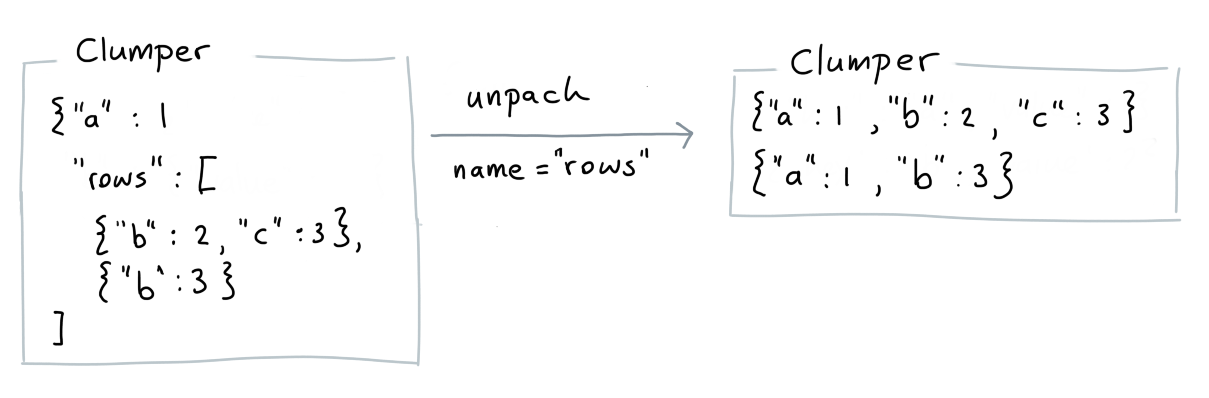 Clumper
{"a" : 1
"rows" : [
{"b" : 2, "c" : 3},
{"b" : 3}
]
unpack
name = "rows"
Clumper
{"a" : 1 , "b" : 2 , "c" : 3}
{"a" : 1 , "b" : 3}